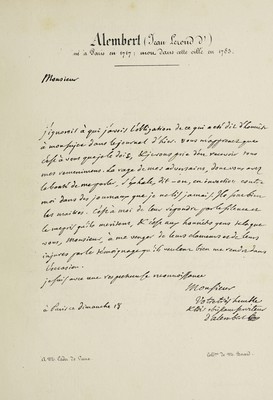 Alembert (Jean Lerond d')
né à Paris en 1717; mort dans cette ville en 1783.
Monsieur
J'ignorois à qui j'avois l'obligation de ce qui a été dit d'honnête
à mon sujet dans le journal d'hier. vous m'apprenez que
c'est à vous que je le dois, & je vous prie d'en recevoir tous
mes remercimens. La rage de mes adversaires, dont vous avez
la bonté de me parler, s'exhale, dit-on, en invectives contre
moi dans des journaux que je ne lis jamais; 
les maitres. C'est à moi de leur répondre par le silence et
le mépris qu'ils méritent, & c'est aux honnêtes gens tels que
vous, Monsieur, à me venger de leurs clameurs et de leurs
injures par le témoignage qu'ils veulent bien me rendre dans
l'occasion.
je suis avec une respectueuse reconnoissance
Monsieur
à Paris ce dimanche 18
Votre très humble
& très obéissant serviteur
D'alembert